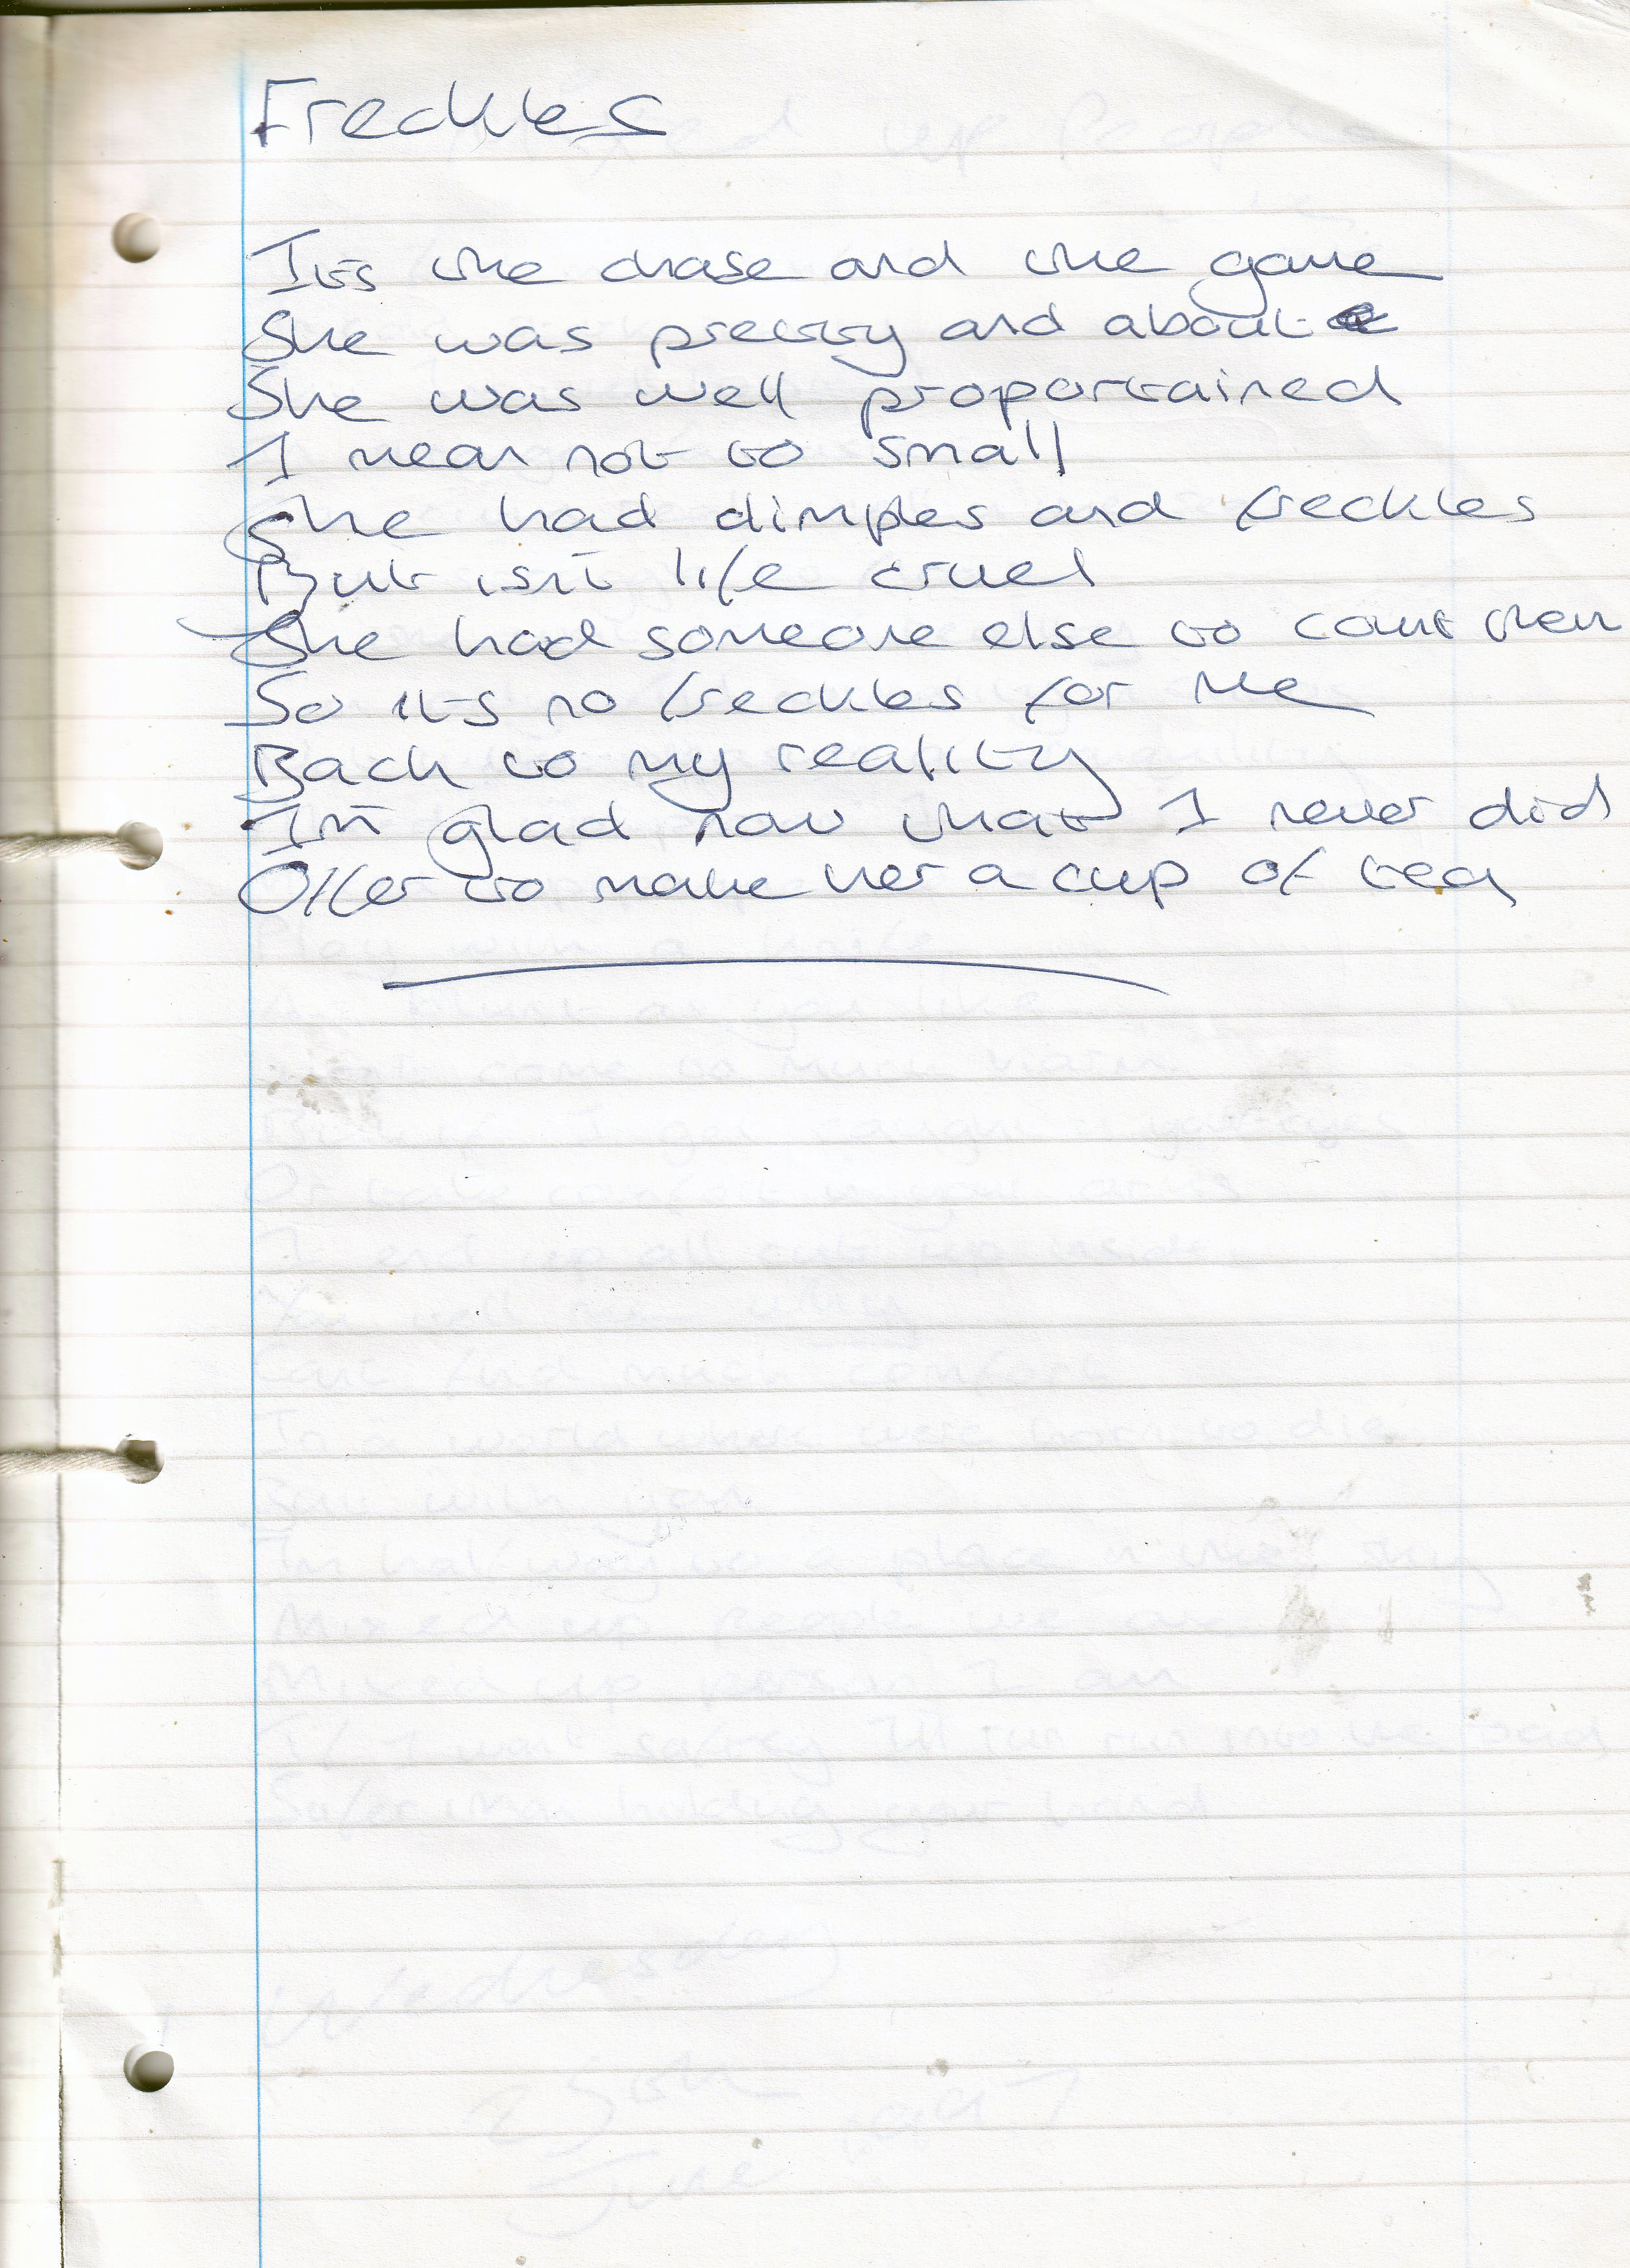 Freckles
Its the chase and the game
She was pretty and about
She was well proportained
I mean not to small
She had dimples and freckles
But isnt life cruel
She had someone else to count them
So its no freckles for me
Back to my reality
Im glad now that I never did
Offer to make her a cup of tea